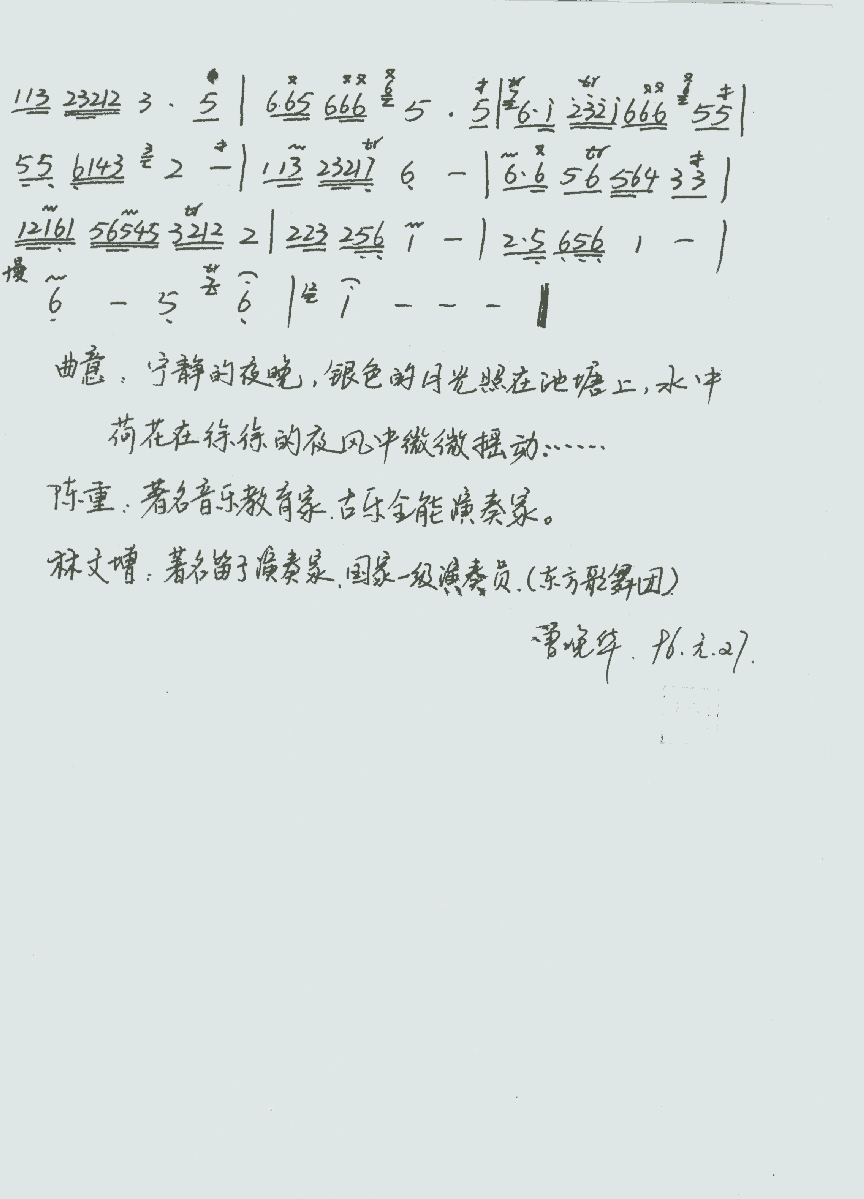 113 23212 3 · 5 | 6·65 666 5 · 5 | 6·i 232i 666 55 |
55 6143 2 - | 113 23217 6 - | 6·6 56 564 33 |
12161 56545 3212 2 | 223 256 i - | 2·5 656 1 - |
慢 6 - 5 6 | i - - - ‖
曲意：宁静的夜晚，银色的月光照在池塘上，水中
荷花在徐徐的夜风中微微摇动……
陈重：著名音乐教育家.古乐全能演奏家。
林文增：著名笛子演奏家.国家一级演奏员.(东方歌舞团)
曾晚华. 96.元.27.